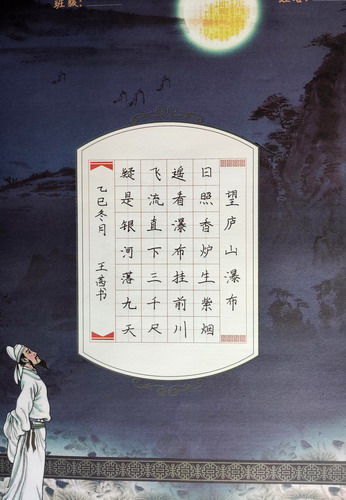 班级:
姓名:
望庐山瀑布
日照香炉生紫烟
遥看瀑布挂前川
飞流直下三千尺
疑是银河落九天
乙巳冬月 王茜书